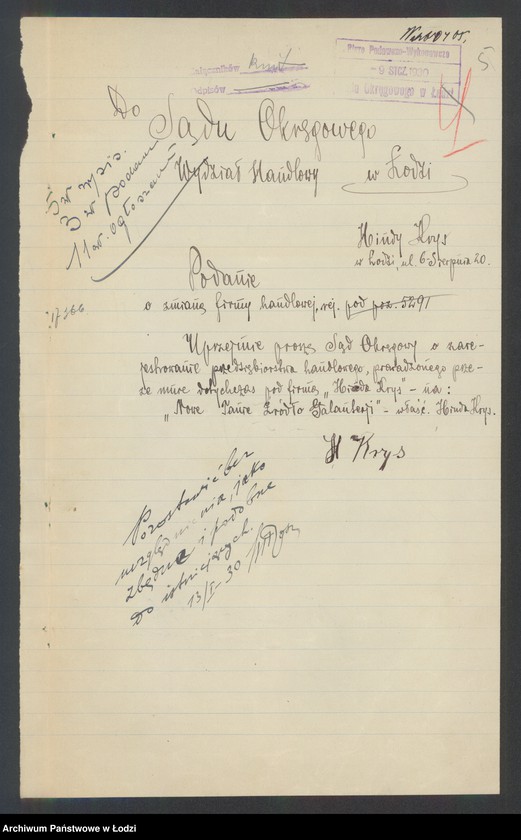 5
Biuro Podawczo-Wykonawcze
- 9 STYCZ. 1930
Okręgowego w Łodzi
Załączników kwit
Odpisów
Do
Sądu Okręgowego
Wydział Handlowy w Łodzi
5 zł wpis.
3 zł podani
11 zł ogłoszeń
Hindy Krys
w Łodzi, ul. 6 Sierpnia 20.
Podanie
o zmianę firmy handlowej, rej. pod poz. 5291
Uprzejmie proszę Sąd Okręgowy o zare-
jestrowanie przedsiębiorstwa handlowego, prowadzonego prze-
ze mnie dotychczas pod firmą „Hinda Krys" - na:
„Nowe Tanie Źródło Galanterji" - właśc. Hinda Krys.
H Krys
Pozostawić bez
uwzględnienia, jako
zbędne i podobne
do istniejących.
13/I 30
Archiwum Państwowe w Łodzi